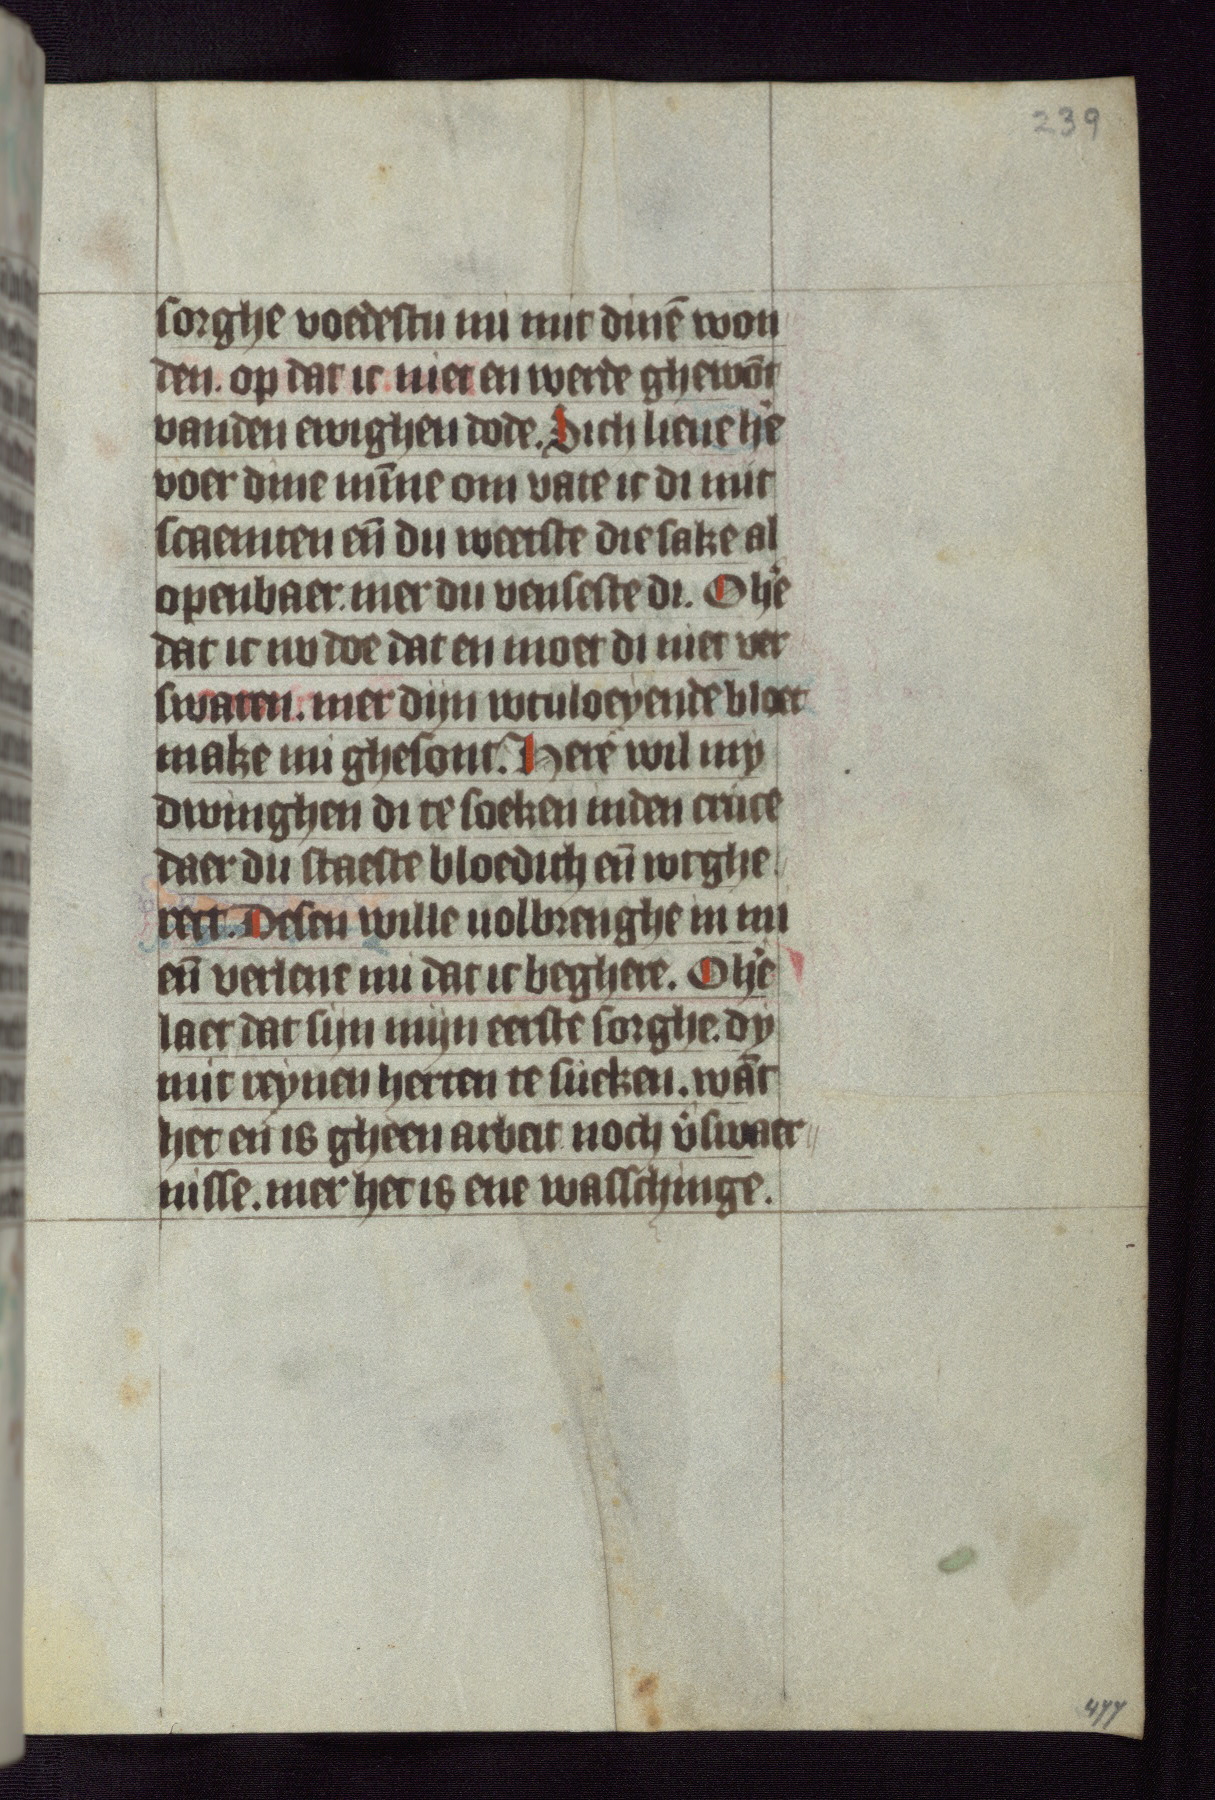 239
sorghe voedestu mi mit dinē won
den. op dat ic niet en werde ghewōt
vanden ewighen dode. Sich lieue h'e
voer dine mīne om vate ic di mit
scaemten eñ du weetste die sake al
openbaer. mer du venseste di. O h'e
dat ic nv doe dat en moet di niet ver
swaren. mer dijn wtuloeyende bloet
make mi ghesont. Here wil my
dwinghen di te soeken inden cruce
daer du staeste bloedich eñ wtghe
rect. Desen wille uolbrenghe in mi
eñ verlene mi dat ic beghere. O h'e
laet dat sijn mijn eerste sorghe. dy
mit reynen herten te sueken. wāt
het en is gheen arbeit noch v'swaer
nisse. mer het is ene wasschinge.
477